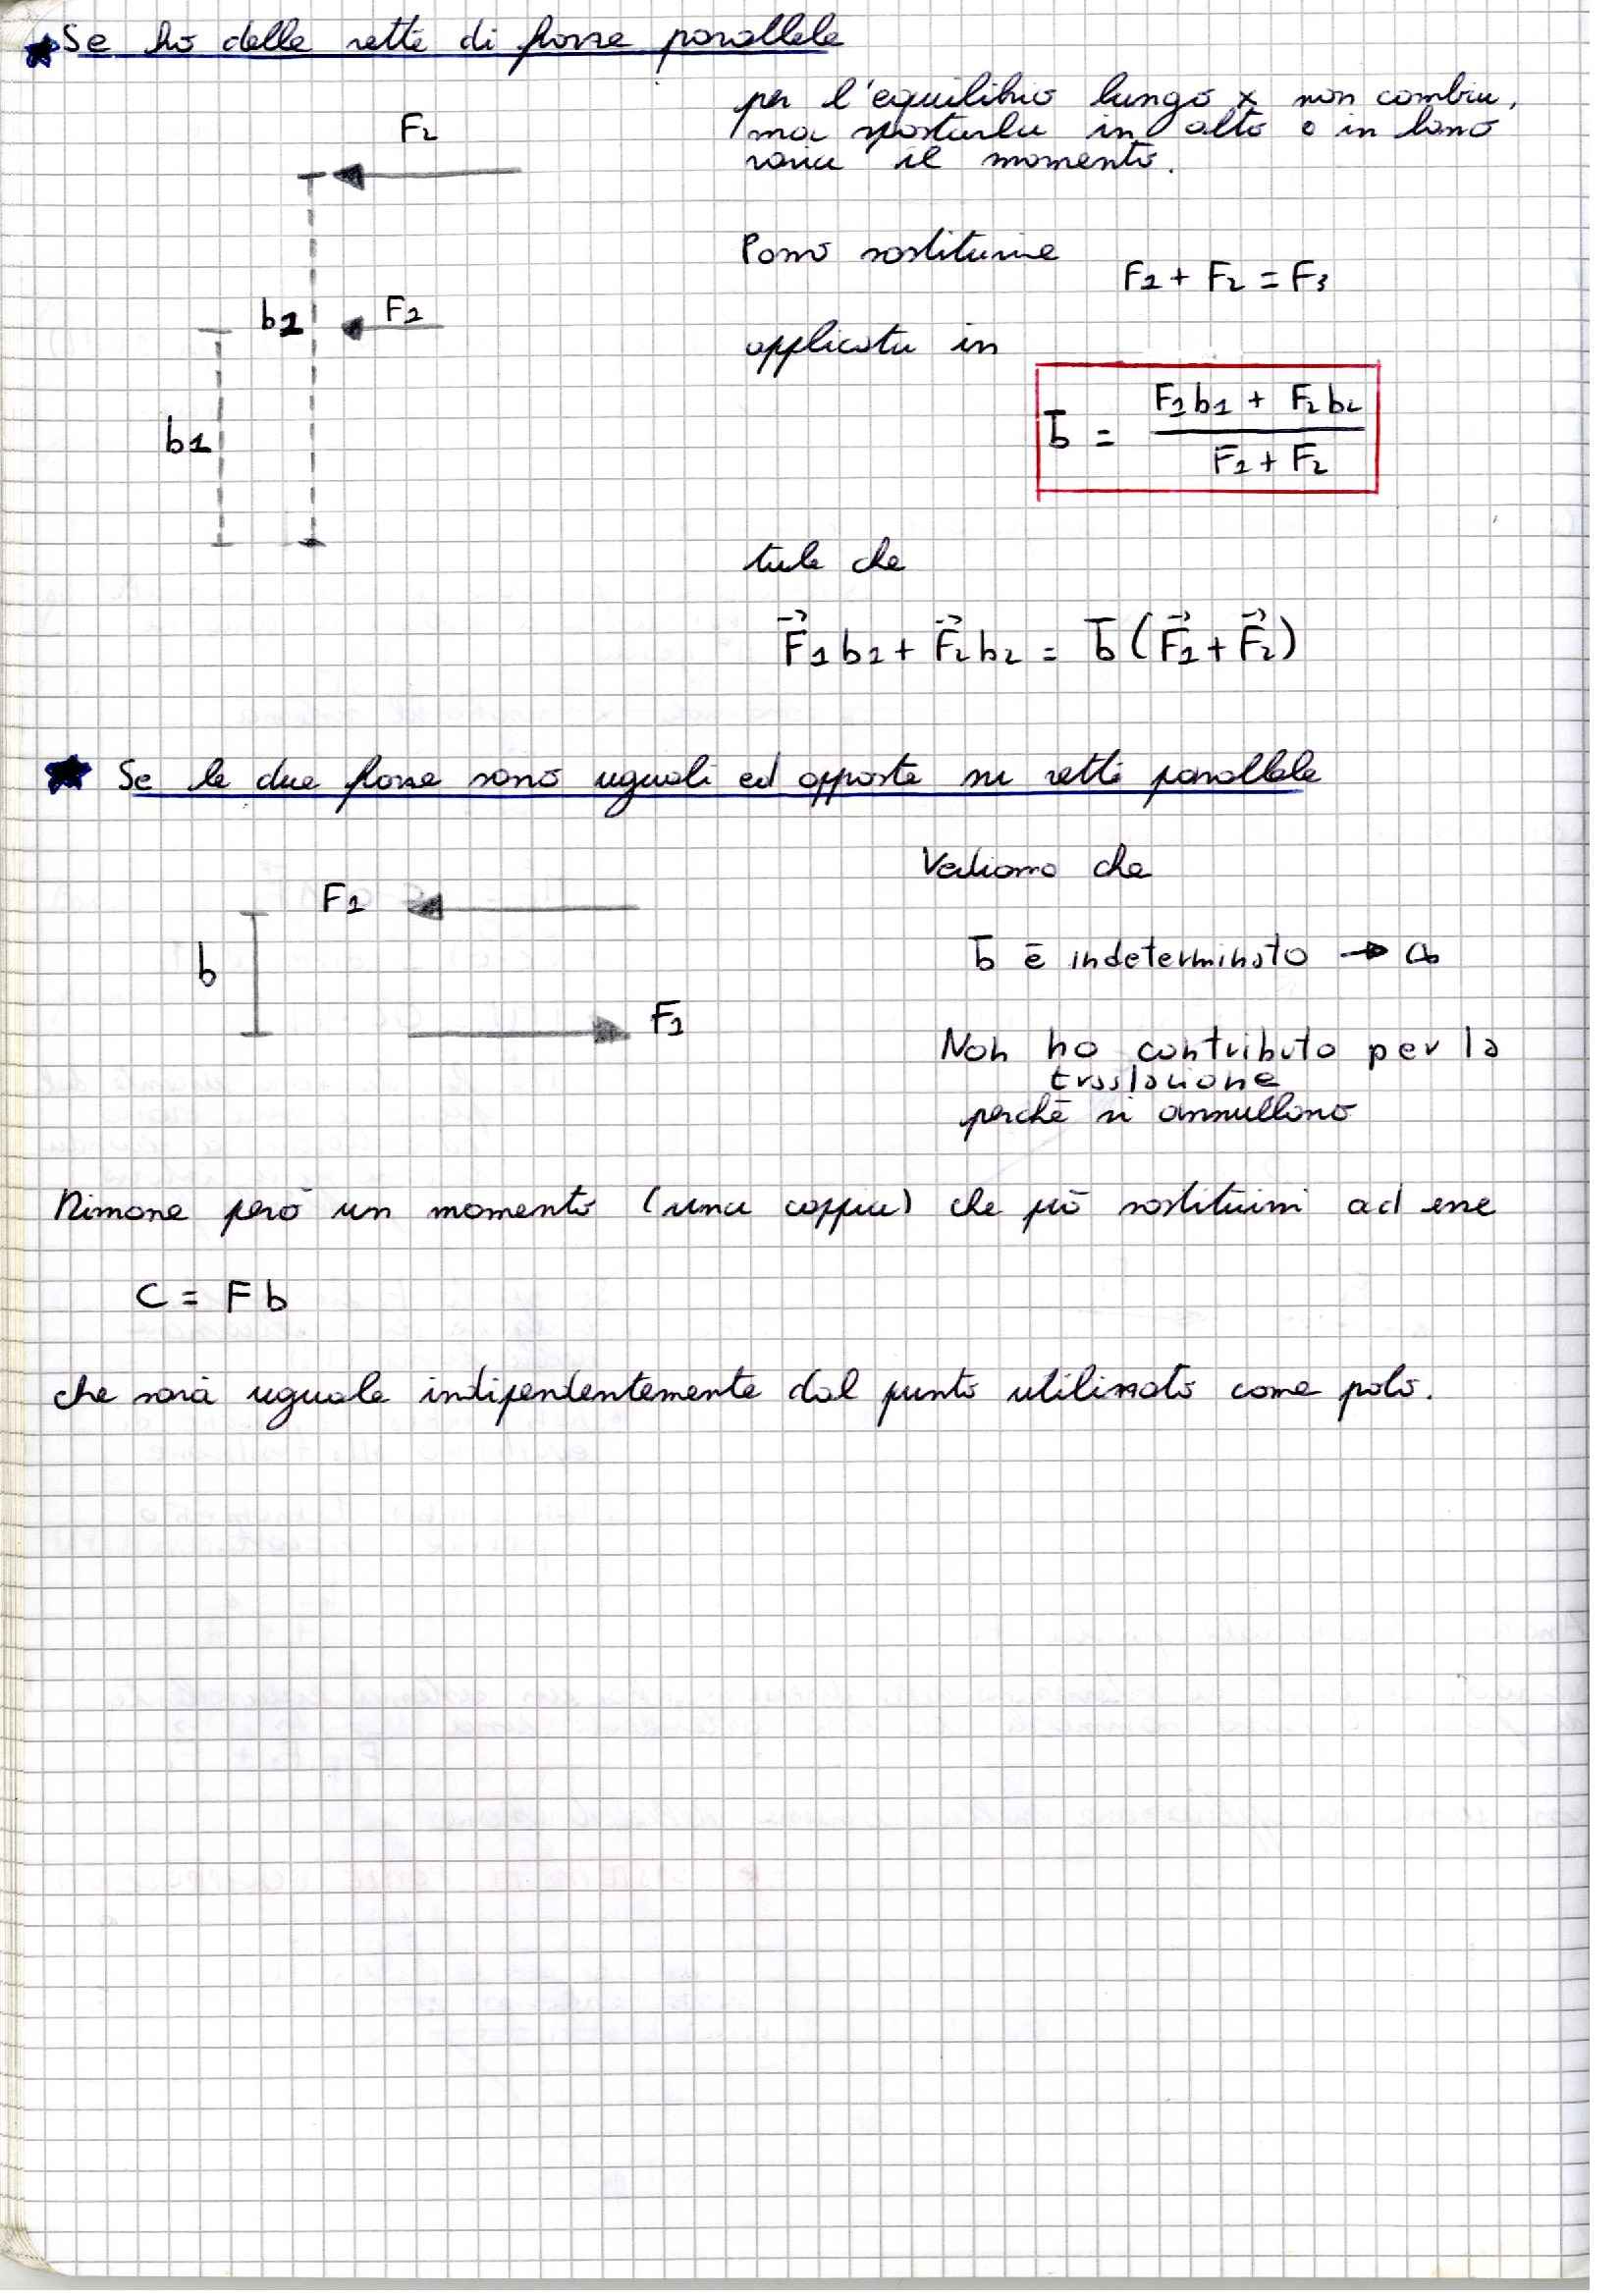 Se ho delle rette di forze parallele
per l'equilibrio lungo x non cambia,
ma spostarla in alto o in basso
varia il momento.
F2
Posso sostituire
F1 + F2 = F3
b2
F1
applicata in
b̄ = (F1 b1 + F2 b2) / (F1 + F2)
b1
tale che
F⃗1 b1 + F⃗2 b2 = b̄ (F⃗1 + F⃗2)
Se le due forze sono uguali ed opposte su rette parallele
Vediamo che
F2
b
b̄ è indeterminato → ∞
F1
Non ho contributo per la
traslazione
perchè si annullano
Rimane però un momento (una coppia) che può sostituirsi ad esse
C = F b
che sarà uguale indipendentemente dal punto utilizzato come polo.